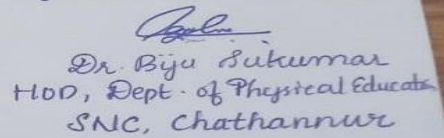 Dr. Biju Sukumar
HOD, Dept. of Physical Educatn
SNC, Chathannur